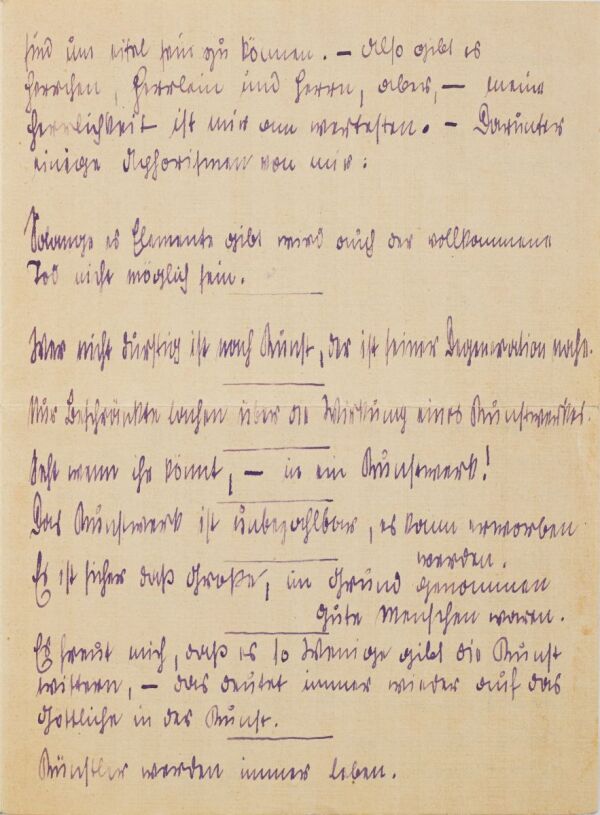 sind um eitel sein zu können. – Also gibt es
Herrchen, Herrlein und Herrn, aber, – meine
Herrlichkeit ist mir am wertesten. – Darunter
einige Aphorismen von mir:
Solange es Elemente gibt wird auch der vollkommene
Tod nicht möglich sein.
Wer nicht durstig ist nach Kunst, der ist seiner Degeneration nahe.
Nur Beschränkte lachen über die Wirkung eines Kunstwerkes.
Seht wenn ihr könnt, – in ein Kunstwerk!
Das Kunstwerk ist unbezahlbar, es kann erworben
werden.
Es ist sicher daß Große, im Grund genommen
gute Menschen waren.
Es freut mich, daß es so Wenige gibt die Kunst
wittern, – das deutet immer wieder auf das
Göttliche in der Kunst.
Künstler werden immer leben.